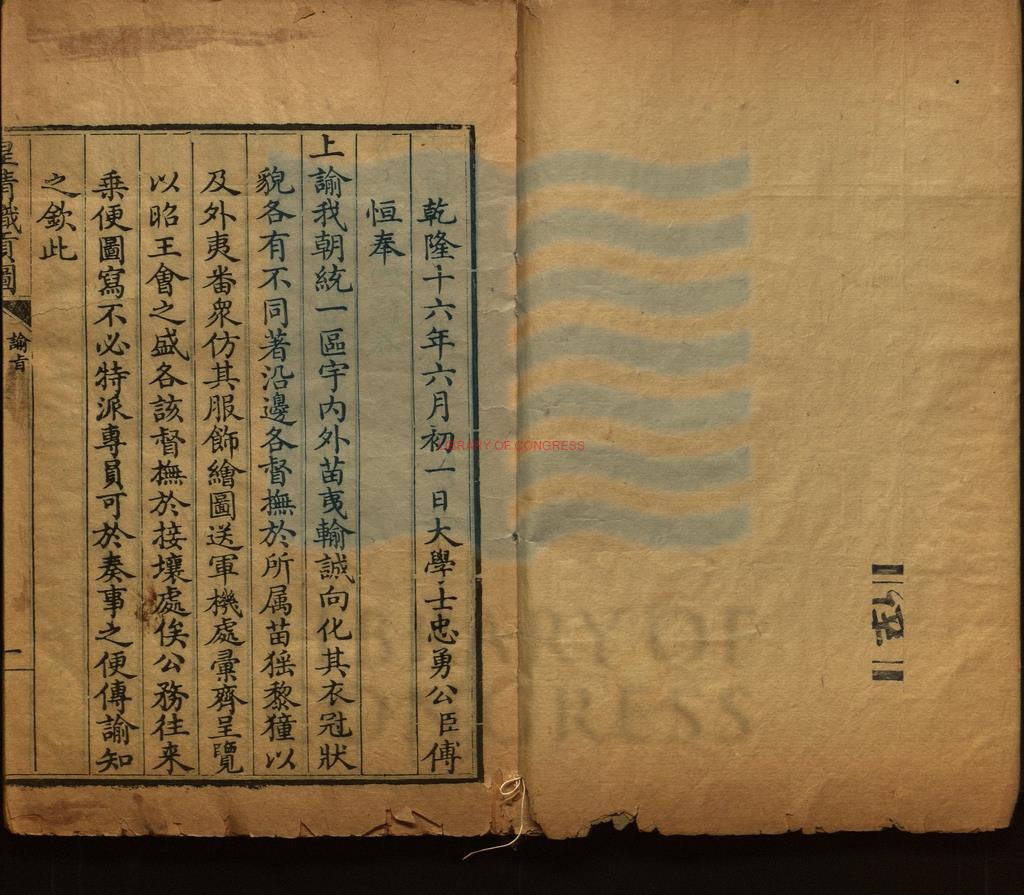 乾隆十六年六月初一日大學士忠勇公臣傅
恒奉
上諭我朝統一區宇内外苗夷輸誠向化其衣冠狀
貌各有不同著沿邊各督撫於所属苗猺黎獞以
及外夷畨衆仿其服飾繪圖送軍機處彚齊呈覽
以昭王會之盛各該督撫於接壤處俟公務往来
乗便圖寫不必特派專員可於奏事之便傳諭知
之欽此
皇清職貢圖
諭旨
一
LIBRARY OF CONGRESS